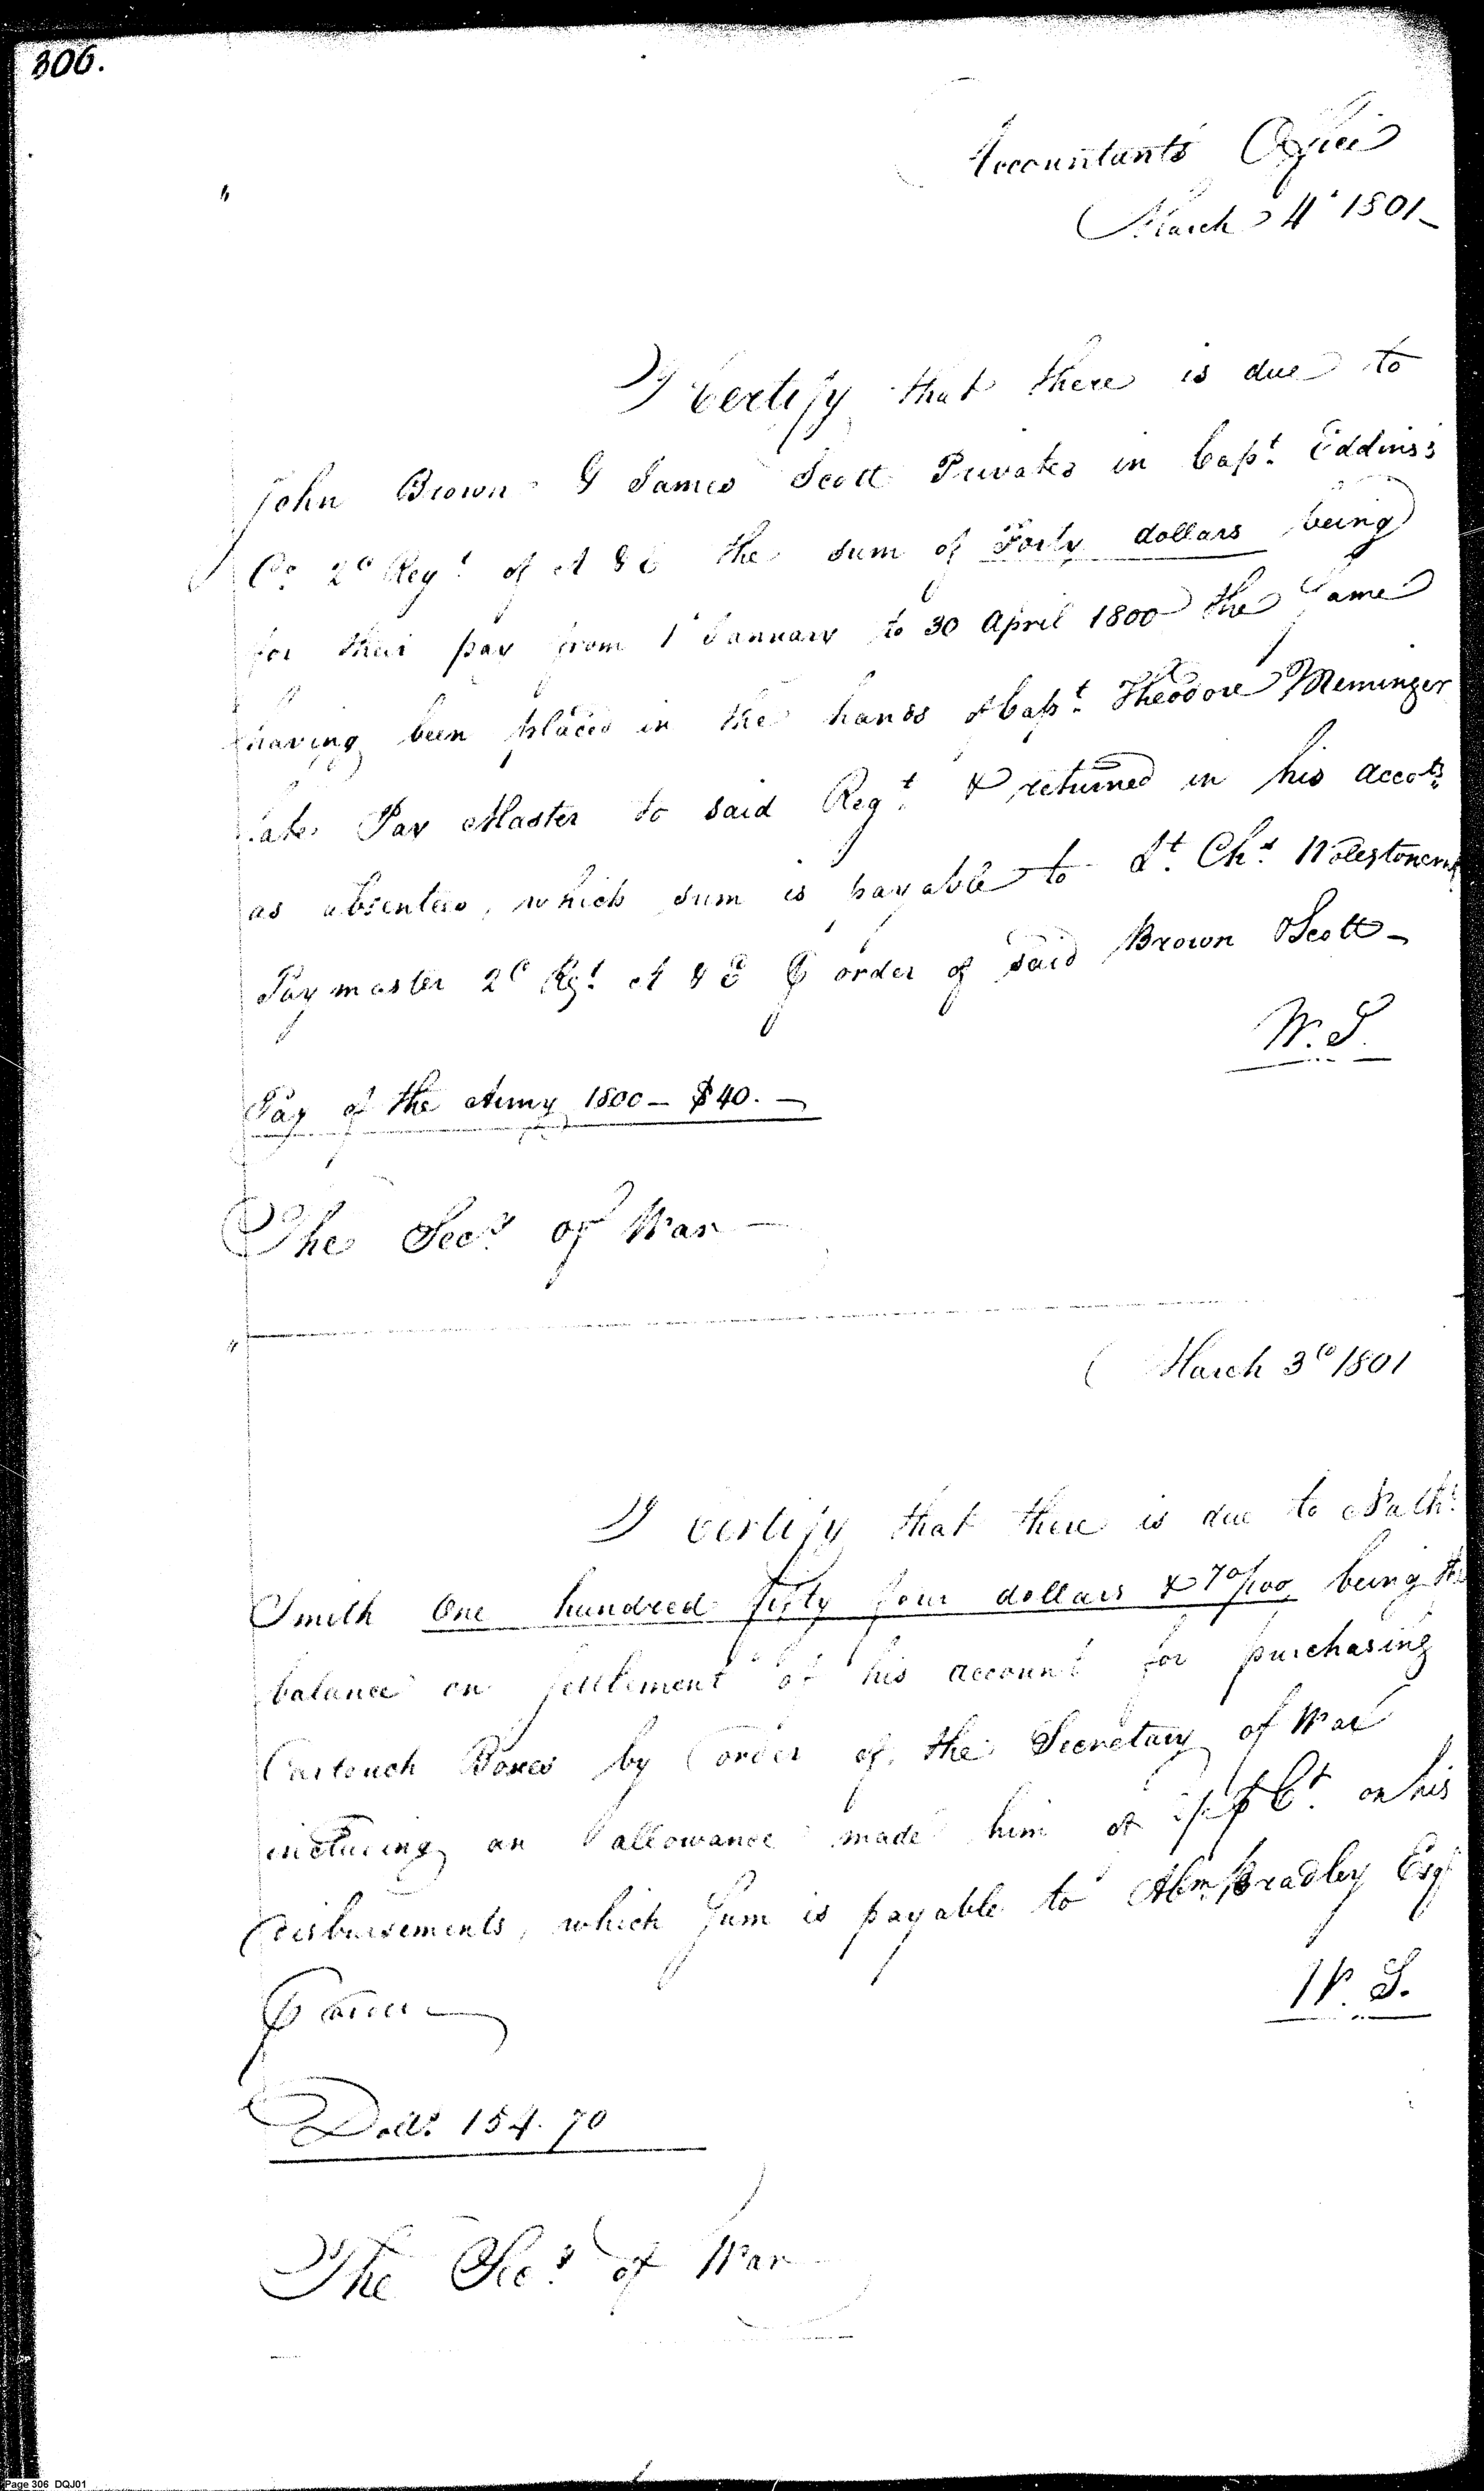 306.
Accountants Office
March 4. 1801
I Certify that there is due to
John Brown & James Scott Privates in Capt. Eddins's
Co. 2d Regt. of A & E the sum of Forty dollars being
for their pay from 1 January to 30 April 1800 the same
having been placed in the hands of Capt. Theodore Meminger
late Pay Master to said Regt. & returned in his accots.
as absentees, which sum is payable to Lt. Chs. Wolestoncraft
Paymaster 2d Rgt. A & E ⅌ order of said Brown & Scott
W. S.
Pay of the Army 1800 – $40. –
The Secy. of War
March 3d 1801
I certify that there is due to Nathl.
Smith One hundred fifty four dollars & 70/100 being the
balance on settlement of his account for purchasing
Cartouch Boxes by order of the Secretary of War
including an allowance made him of ⅌ Ct. on his
disbursements, which sum is payable to Abm. Bradley Esqr
W. S.
Dolls. 154.70
The Secy. of War
Page 306 DQJ01